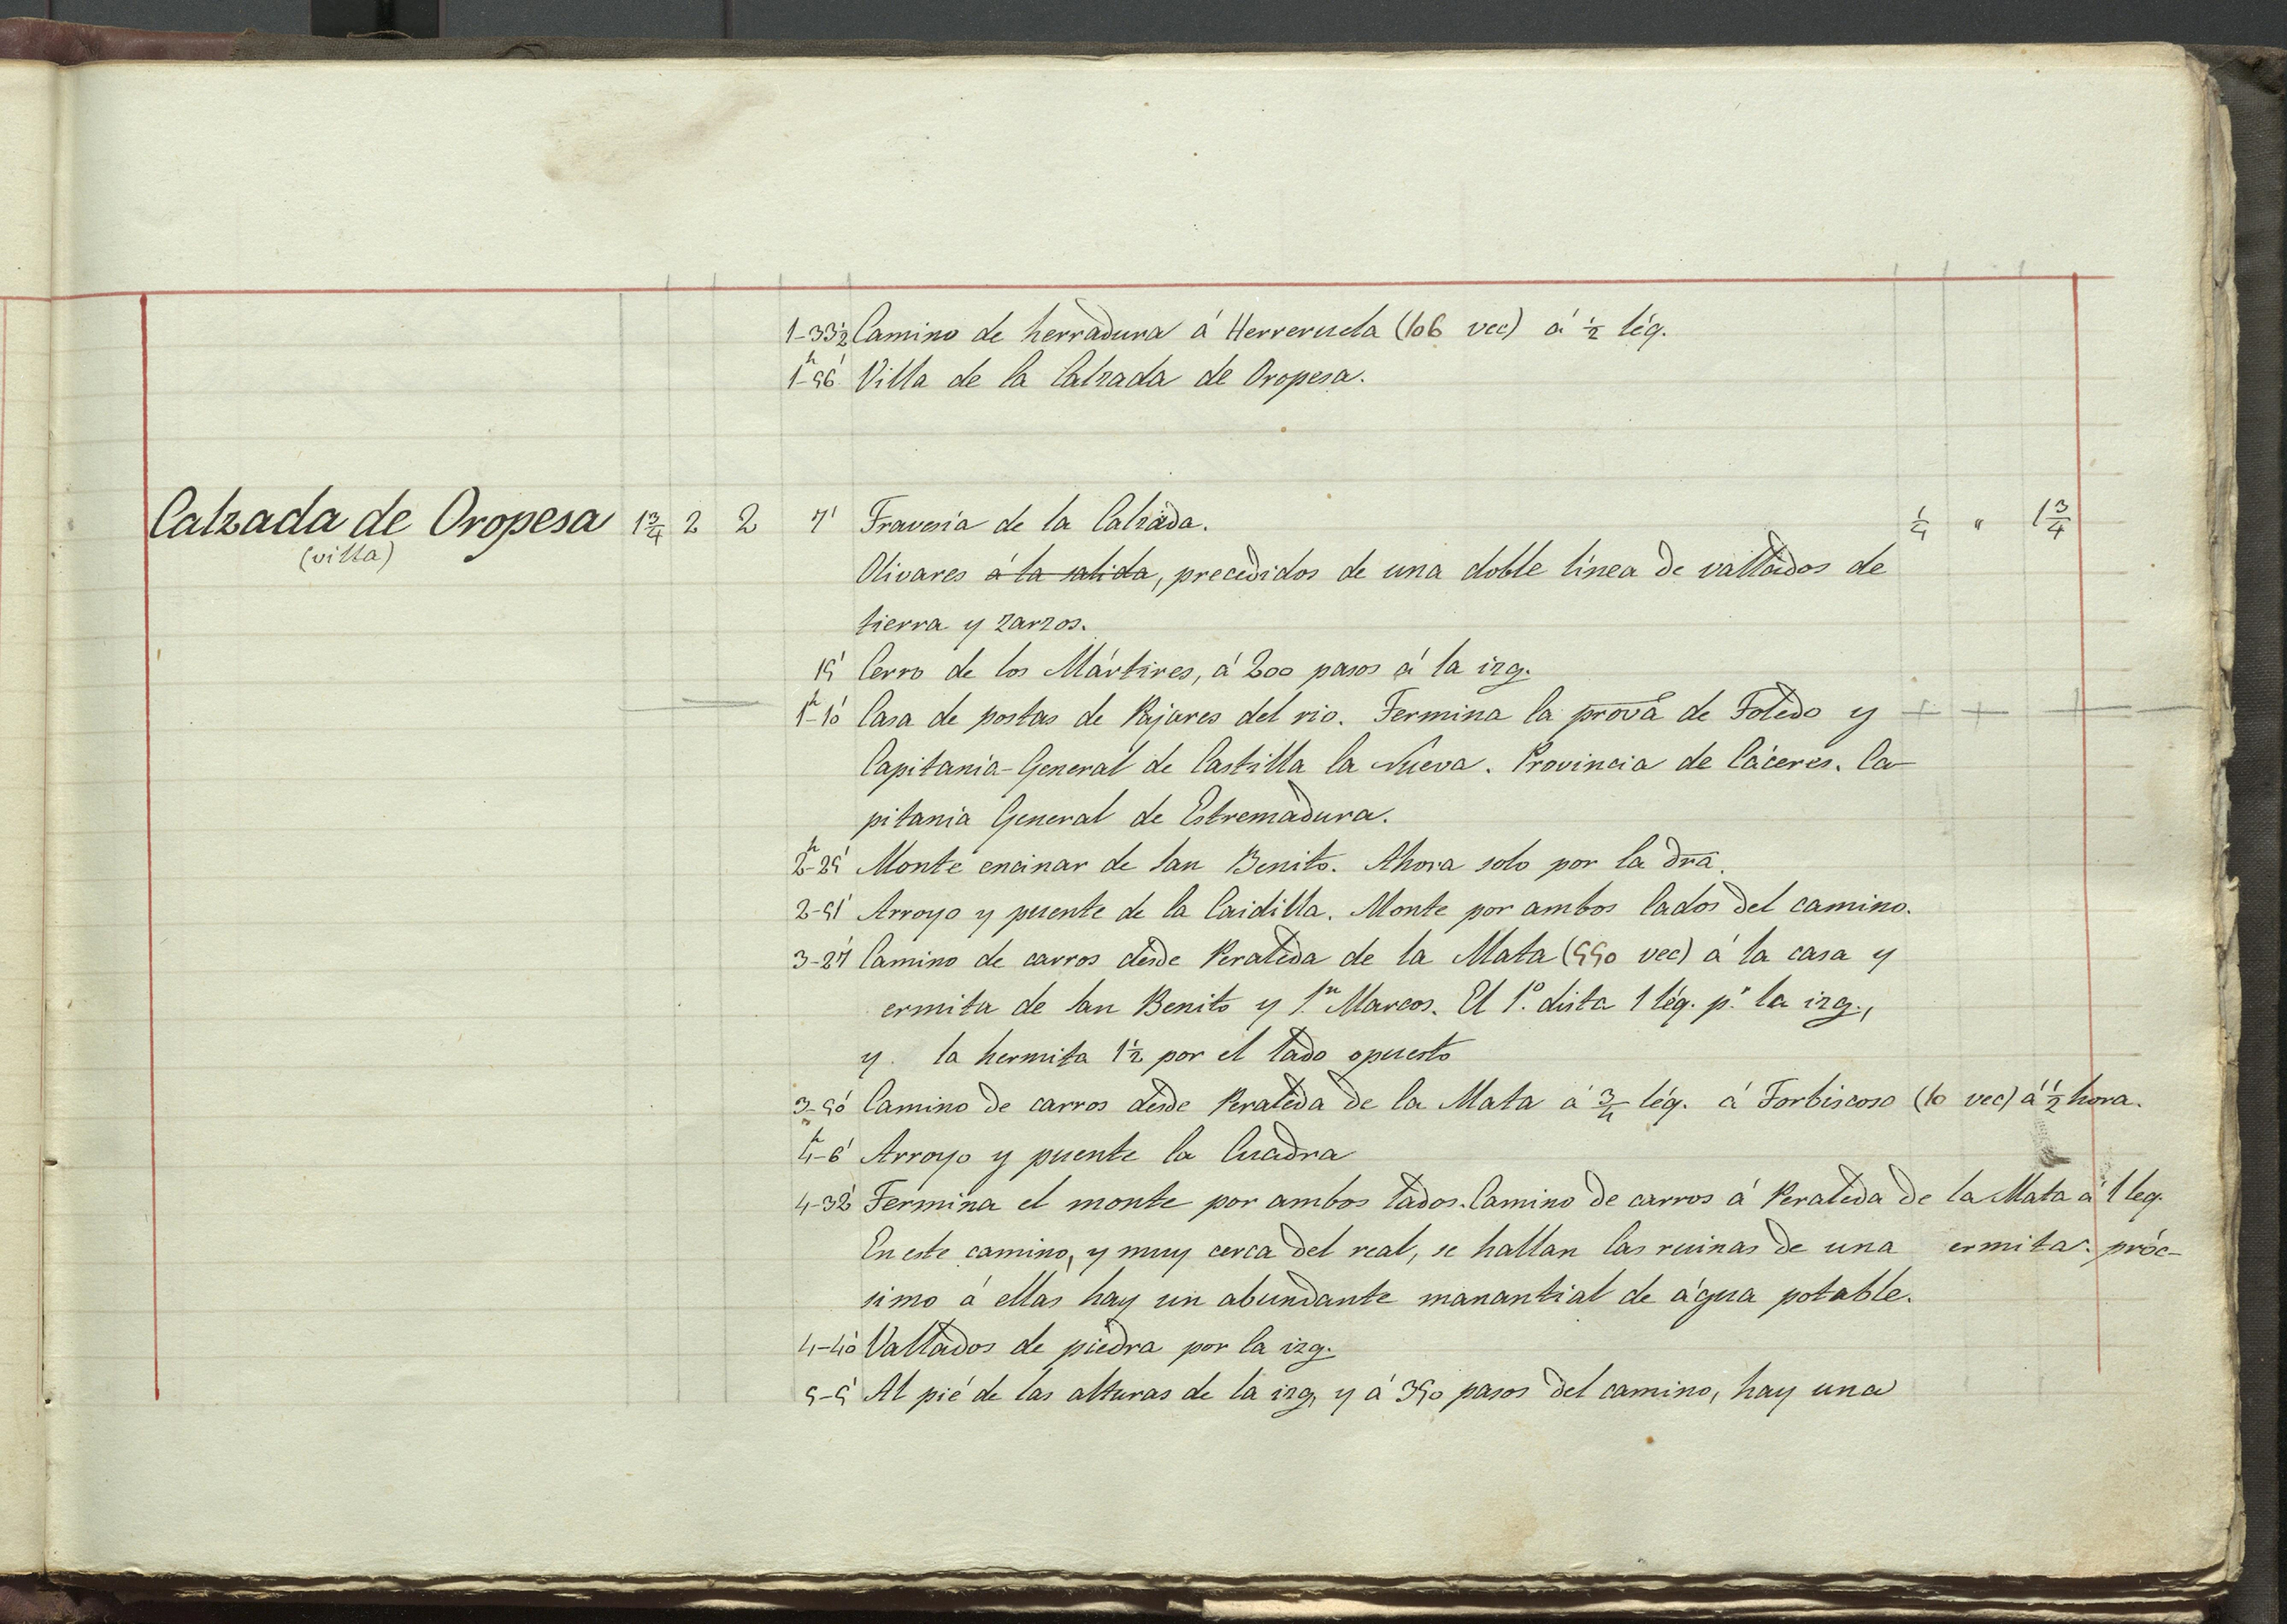 1-33½ Camino de herradura á Herreruela (106 vec) á ½ lég.
1h-56' Villa de la Calzada de Oropesa.
Calzada de Oropesa 1¾ 2 2 7' Travesía de la Calzada. ¼ " 1¾
(villa)
Olivares á la salida, precedidos de una doble línea de vallados de
tierra y zarzos.
15' Cerro de los Mártires, á 200 pasos á la izq.
1h-10' Casa de postas de Pajares del rio. Termina la prova de Toledo y
Capitanía-General de Castilla la Nueva. Provincia de Cáceres. Ca-
pitania General de Estremadura.
2h-25' Monte encinar de San Benito. Ahora solo por la dra.
2-51' Arroyo y puente de la Caidilla. Monte por ambos lados del camino.
3-27' Camino de carros desde Peraleda de la Mata (550 vec) á la casa y
ermita de San Benito y Sn. Marcos. El 1º. dista 1 lég. pr. la izq.,
y la hermita 1½ por el lado opuesto
3-50' Camino de carros desde Peraleda de la Mata á ¾ lég. á Torbiscoso (10 vec) á ½ hora.
4h-6' Arroyo y puente la Cuadra
4-32' Termina el monte por ambos lados. Camino de carros á Peraleda de la Mata á 1 leg.
En este camino, y muy cerca del real, se hallan las ruinas de una ermita. próc-
simo á ellas hay un abundante manantial de água potable.
4-40' Vallados de piedra por la izq.
5-5' Al pié de las alturas de la izq, y á 350 pasos del camino, hay una